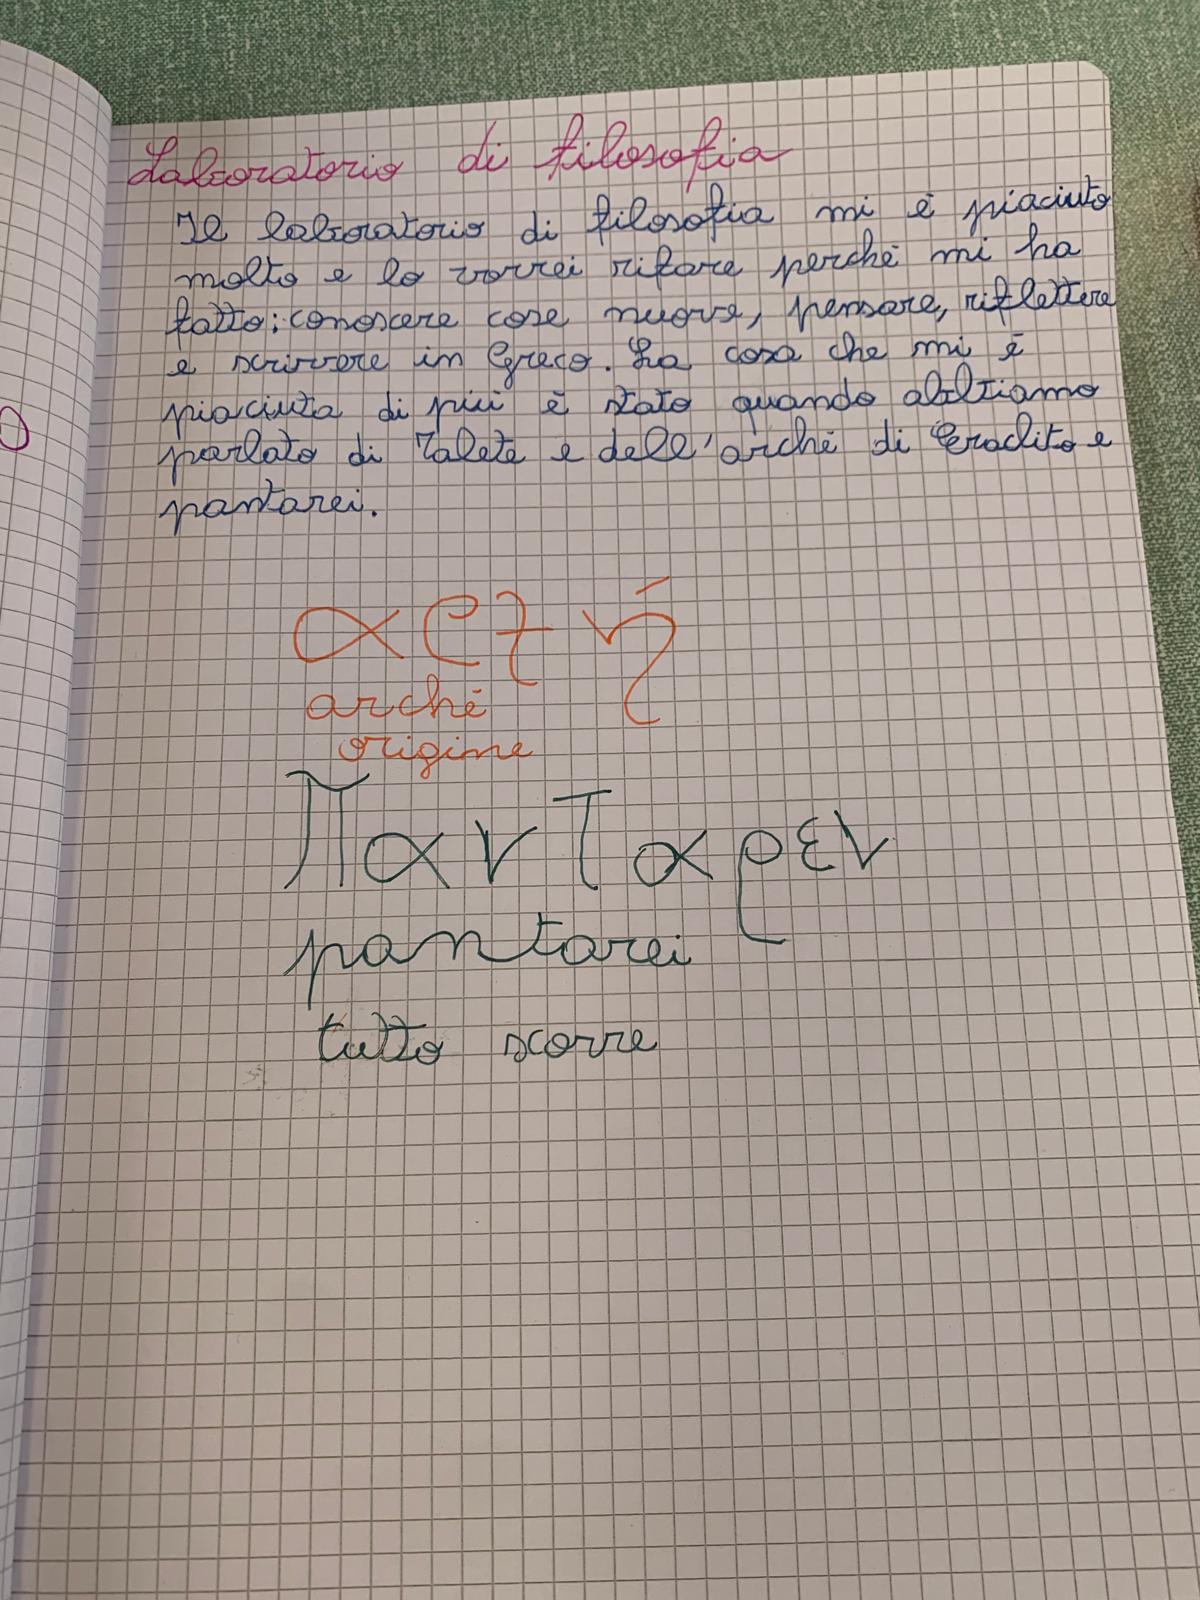 Laboratorio di filosofia
Il laboratorio di filosofia mi è piaciuto
molto e lo vorrei rifare perché mi ha
fatto: conoscere cose nuove, pensare, riflettere
e scrivere in Greco. La cosa che mi è
piaciuta di più è stato quando abbiamo
parlato di Talete e dell'arché di Eraclito e
pantarei.
αρχή
arché
origine
Πανταρεν
pantarei
tutto scorre